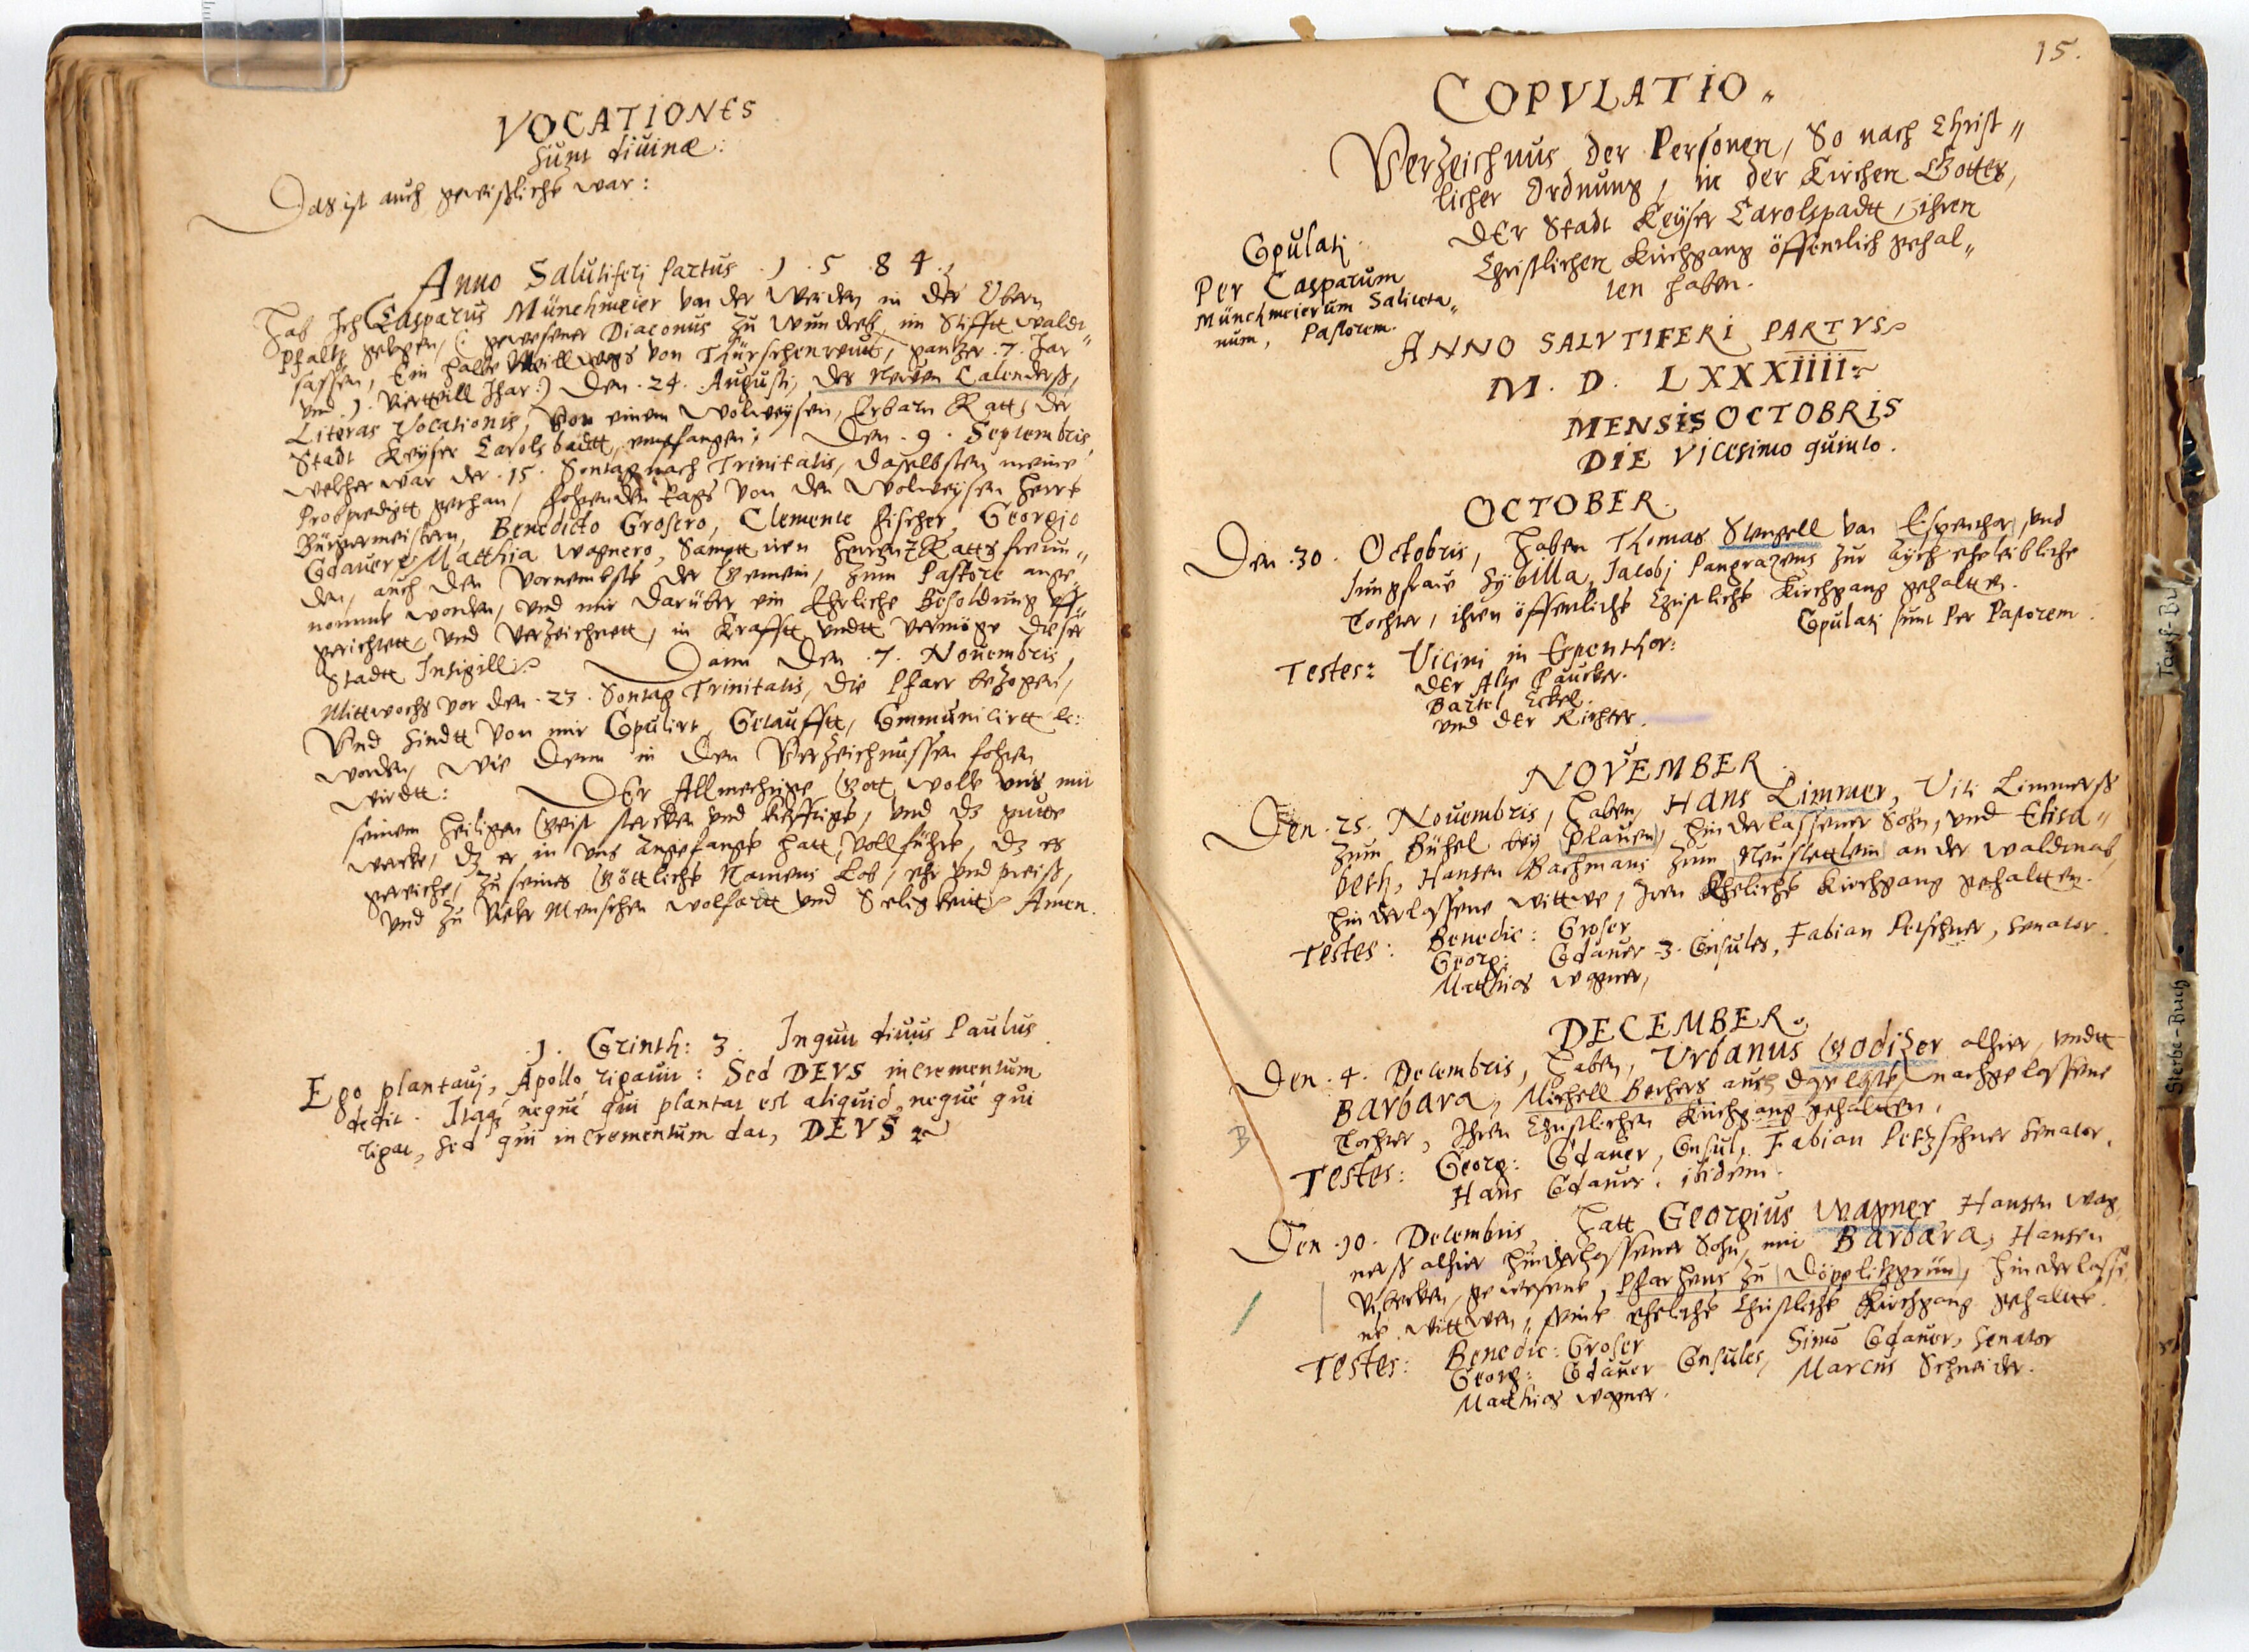 VOCATIONES
sunt diuinæ:
Das ist auch gewißlichē war:
Anno Salutiferj partus .1.5 84.
Hab Jch Casparus Münchmeier von der Weiden in der Obern
Pfaltz gelegen, (: gewesener Diaconus zu Wundreb, im Stifft Waldt„
sassen, Ein halbe Meillwegs von Thürschenreutt, gantzer .7. Jar
vnd .1. Viertteill Jhar:) Den .24. Augusti, des Neuen Calenderß,
Literas Vocationis, Von einem Wolweysen, Erbarn Ratt, der
Stadt Keyser Carolsbadtt, empfangen; Den .9. Septembris,
welcher war der .15. Sontag nach Trinitatis, daselbsten meine
Probpredigtt gethan, folgenden tags von den Wolweysen Herrē
Bürgermeistern, Benedicto Grosero, Clemente Fischer, Georgio
Codauer, Matthia Wagnero, Samptt iren Herren Ratts freun„
den, auch den Vornembstē der Gemein, zum Pastore ange„
nommē worden, vnd mir darüber ein Ehrliche Besoldung
gerichtett, vnd Verzeichnett, in Krafftt vndtt Vermöge dieser
Stadtt Insigill. Dann den .7. Nouembris,
Mittwochs vor den .23. Sontag Trinitatis, die Pfarr bezogen,
Vnd sindtt von mir Copulirt, Getaufftt, Communicirtt ec:
worden, Wie denn in den Verzeichnussen folgen
wirdtt: DEr Allmechtige Gott wolle vns mit
seinem heiligen Geist stercken vnd krefftigē, vnd dz gutte
wercke, dz er in vns angefangē hatt, vollführē, dz es
gereiche, zu seines Göttlichē Namens Lob, ehr vnd preiß,
vnd zu Vieler Menschen wolfartt vnd Seeligkeitt. Amen.
.1. Corinth: 3. Inquit diuus Paulus.
Ego plantauj, Apollo rigauit: Sed DEVS incrementum
dedit. Itaq; neque qui plantat est aliquid, neque qui
rigat, sed qui incrementum dat, DEVS
15.
COPVLATIO„
Verzeichnus der Personen, So nach Christ„
licher Ordnung, in der Kirchen Gottes,
DEr Stadt Keyser Carolspadtt, ihren
Christlichen Kirchgang öffentlich gehal„
ten haben.
Copulatj
Per Casparum
Münchmeierum Saliceta„
num, Pastorem.
ANNO SALVTIFERI PARTVS
M. D. LXXXIIII
MENSIS OCTOBRIS
DIE Vicesimo quinto.
OCTOBER.
Den .30. Octobris, Haben Thomas Stengell van Espenthor, vnd
Jungfraw Sybilla, Jacobj Pangrazens zur Aych eheleibliche
Tochter, ihren öffentlichē Christlichē Kirchgang gehaltten.
Copulatj sunt Per Pastorem.
Testes: Vicini in Espenthor:
DEr Alte Paucker.
Bartel Eckel.
vnd DEr Richter.
NOVEMBER.
Den .25. Nouembris, Haben, Hans Limmer, Viti Limmerß
zum Bühel bey Plauen, hinderlassener Sohn, vnd Elisa„
beth, Hansen Bachmans zum Neustettlein an der Waldnab,
hinderlassene Wittwe, Jren Ehelichē Kirchgang gehaltten.
Testes: Benedic: Groser
Georg: Codauer 3. Consules, Fabian Petschner, Senator.
Matthias Wagner,
DECEMBER.
Den .4. Decembris, Haben, Vrbanus Godizer alhier, vndtt
Barbara, Michell Bechers auch daselbstē, nachgelassene
Tochter, Jhren Christlichen Kirchgang gehaltten.
B
Testes: Georg: Codauer, Consul, Fabian Petzschner Senator.
Hans Codauer. ibidem.
Den .10. Decembris, Hatt Georgius Wagner Hansen Wag„
nerß alhier hinderlassener Sohn, mit Barbara, Hansen
gewesenē, Pfarhers zu Döpplitzgrün, hinderlasse„
nē Wittwen, seine ehelichē Christlichē Kirchgang gehaltē.
Testes: Benedic: Groser
Georg: Codauer Consules, Simō Codauer, Senator
Matthias Wagner. Marcus Schneider.
Tauf-Bu
Sterbe-Buch